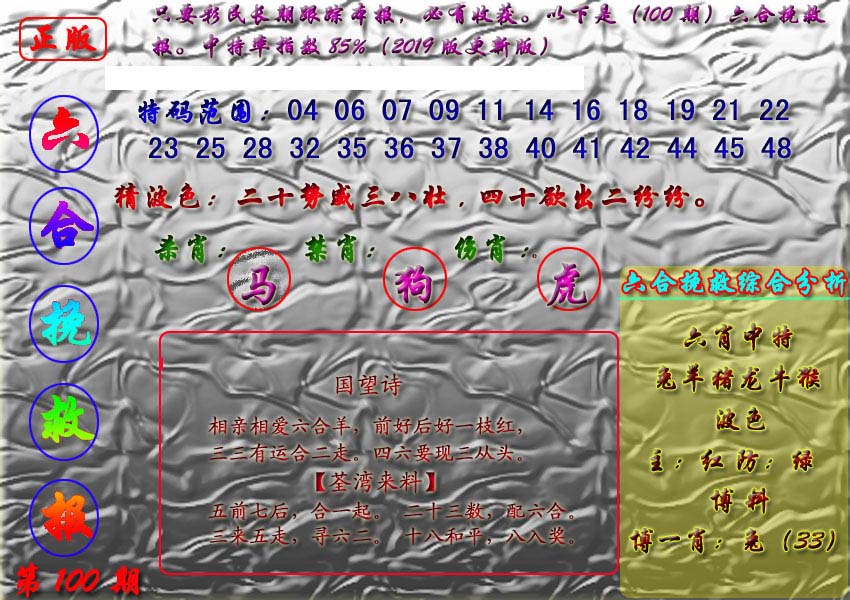 正版
只要彩民长期跟踪本报，必有收获。以下是（100期）六合挽救
报。中特率指数85%（2019版更新版）
六
合
挽
救
报
第100期
特码范围：04 06 07 09 11 14 16 18 19 21 22
23 25 28 32 35 36 37 38 40 41 42 44 45 48
猜波色：二十势威三八壮，四十欲出二纷纷。
杀肖：马 禁肖：狗 伤肖：虎
国望诗
相亲相爱六合羊，前好后好一枝红，
三三有运合二走。四六要现三从头。
【荃湾来料】
五前七后，合一起。 二十三数，配六合。
三来五走，寻六二。 十八和平，八入奖。
六合挽救综合分析
六肖中特
兔羊猪龙牛猴
波色
主：红防：绿
博料
博一肖：兔（33）